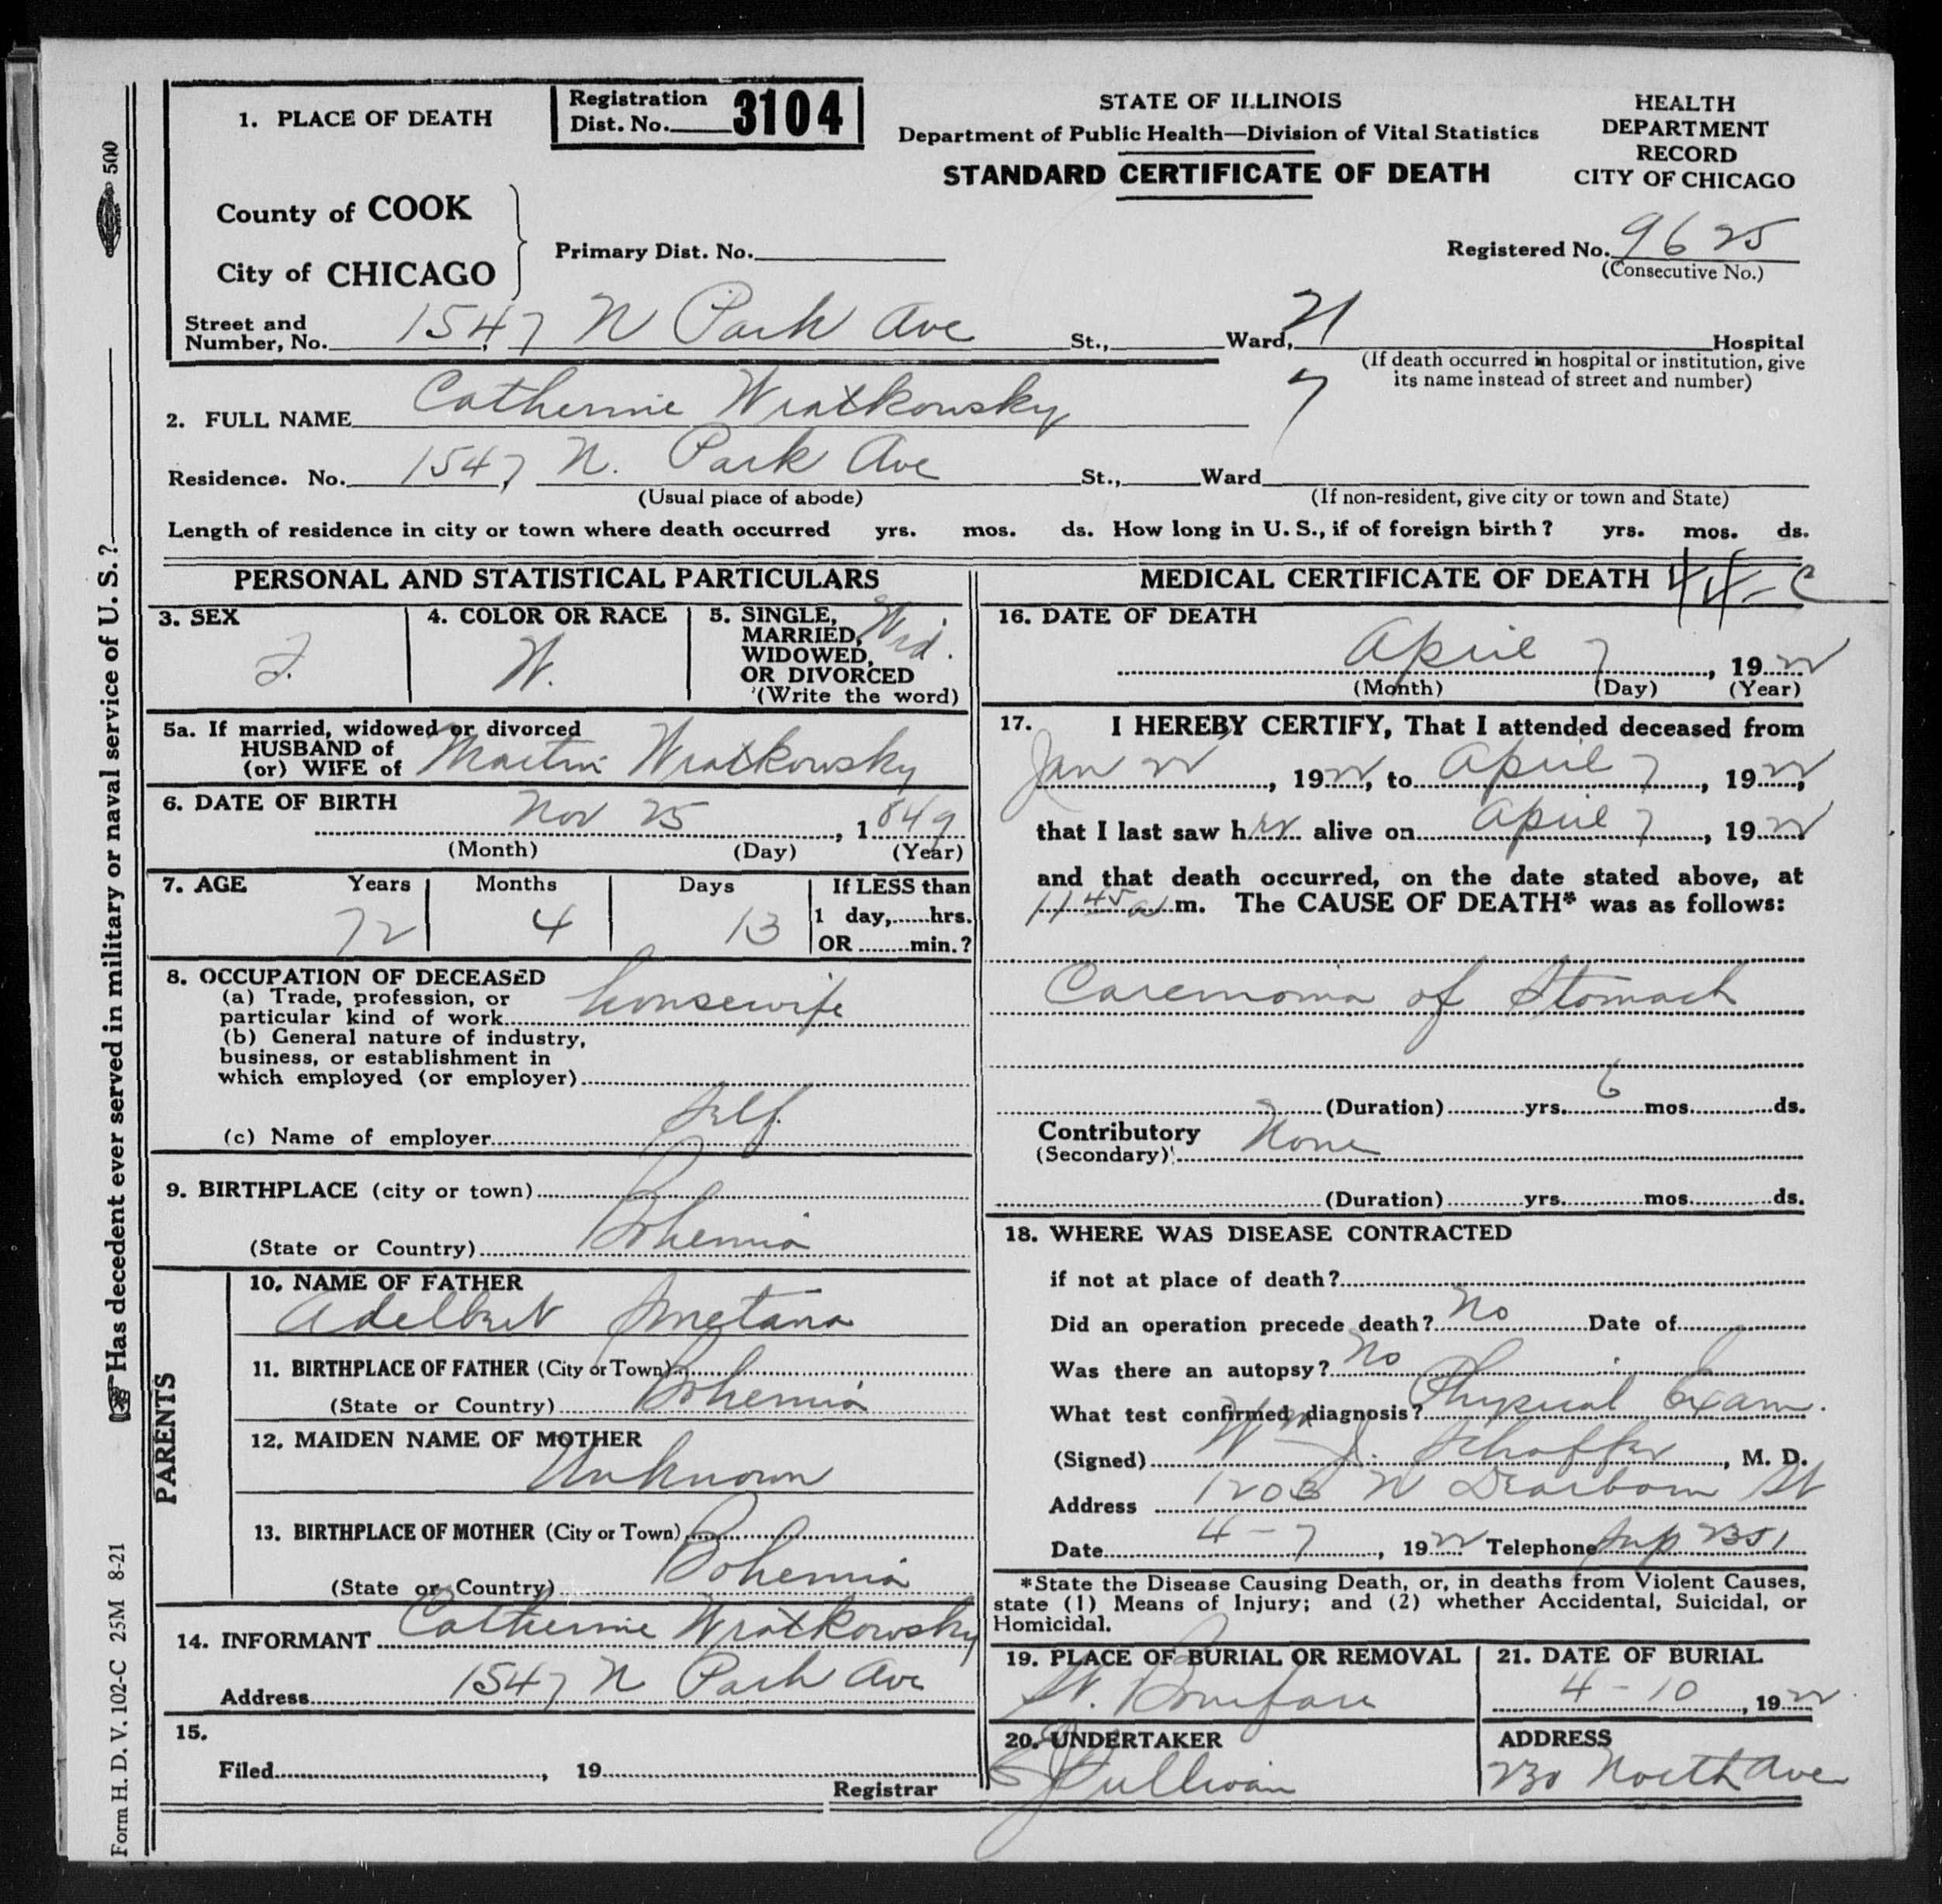 1. PLACE OF DEATH
Registration
Dist. No. 3104
STATE OF ILLINOIS
Department of Public Health—Division of Vital Statistics
STANDARD CERTIFICATE OF DEATH
HEALTH
DEPARTMENT
RECORD
CITY OF CHICAGO
County of COOK
City of CHICAGO
Primary Dist. No.
Registered No. 9625
(Consecutive No.)
Street and
Number, No. 1547 N Park Ave St., Ward, 21 Hospital
(If death occurred in hospital or institution, give
its name instead of street and number)
7
2. FULL NAME Catherine Wratkowsky
Residence. No. 1547 N. Park Ave St., Ward
(Usual place of abode) (If non-resident, give city or town and State)
Length of residence in city or town where death occurred yrs. mos. ds. How long in U. S., if of foreign birth? yrs. mos. ds.
PERSONAL AND STATISTICAL PARTICULARS
3. SEX
F.
4. COLOR OR RACE
W.
5. SINGLE,
MARRIED,
WIDOWED,
OR DIVORCED
(Write the word)
Wid.
5a. If married, widowed or divorced
HUSBAND of
(or) WIFE of Martin Wratkowsky
6. DATE OF BIRTH
Nov 25, 1849
(Month) (Day) (Year)
7. AGE Years Months Days If LESS than
1 day,......hrs.
OR ........min.?
72 4 13
8. OCCUPATION OF DECEASED
(a) Trade, profession, or
particular kind of work housewife
(b) General nature of industry,
business, or establishment in
which employed (or employer)
(c) Name of employer Self
9. BIRTHPLACE (city or town)
(State or Country) Bohemia
PARENTS
10. NAME OF FATHER
Adelbert Smetana
11. BIRTHPLACE OF FATHER (City or Town)
(State or Country) Bohemia
12. MAIDEN NAME OF MOTHER
Unknown
13. BIRTHPLACE OF MOTHER (City or Town)
(State or Country) Bohemia
14. INFORMANT Catherine Wratkowsky
Address 1547 N Park Ave
15.
Filed, 19
Registrar
MEDICAL CERTIFICATE OF DEATH 44-C
16. DATE OF DEATH
April 7, 1922
(Month) (Day) (Year)
17. I HEREBY CERTIFY, That I attended deceased from
Jan 22, 1922, to April 7, 1922,
that I last saw her alive on April 7, 1922
and that death occurred, on the date stated above, at
11 45 a m. The CAUSE OF DEATH* was as follows:
Carcinoma of Stomach
(Duration) yrs. 6 mos. ds.
Contributory None
(Secondary)
(Duration) yrs. mos. ds.
18. WHERE WAS DISEASE CONTRACTED
if not at place of death?
Did an operation precede death? No Date of
Was there an autopsy? No
What test confirmed diagnosis? Physical Exam.
(Signed) Wm J. Schaffer, M. D.
Address 1203 N Dearborn St
Date 4-7, 1922 Telephone Sup 2351
*State the Disease Causing Death, or, in deaths from Violent Causes,
state (1) Means of Injury; and (2) whether Accidental, Suicidal, or
Homicidal.
19. PLACE OF BURIAL OR REMOVAL
St. Boniface
21. DATE OF BURIAL
4-10, 1922
20. UNDERTAKER
Sullivan
ADDRESS
230 North Ave
500
Has decedent ever served in military or naval service of U. S.?
Form H. D. V. 102-C 25M 8-21